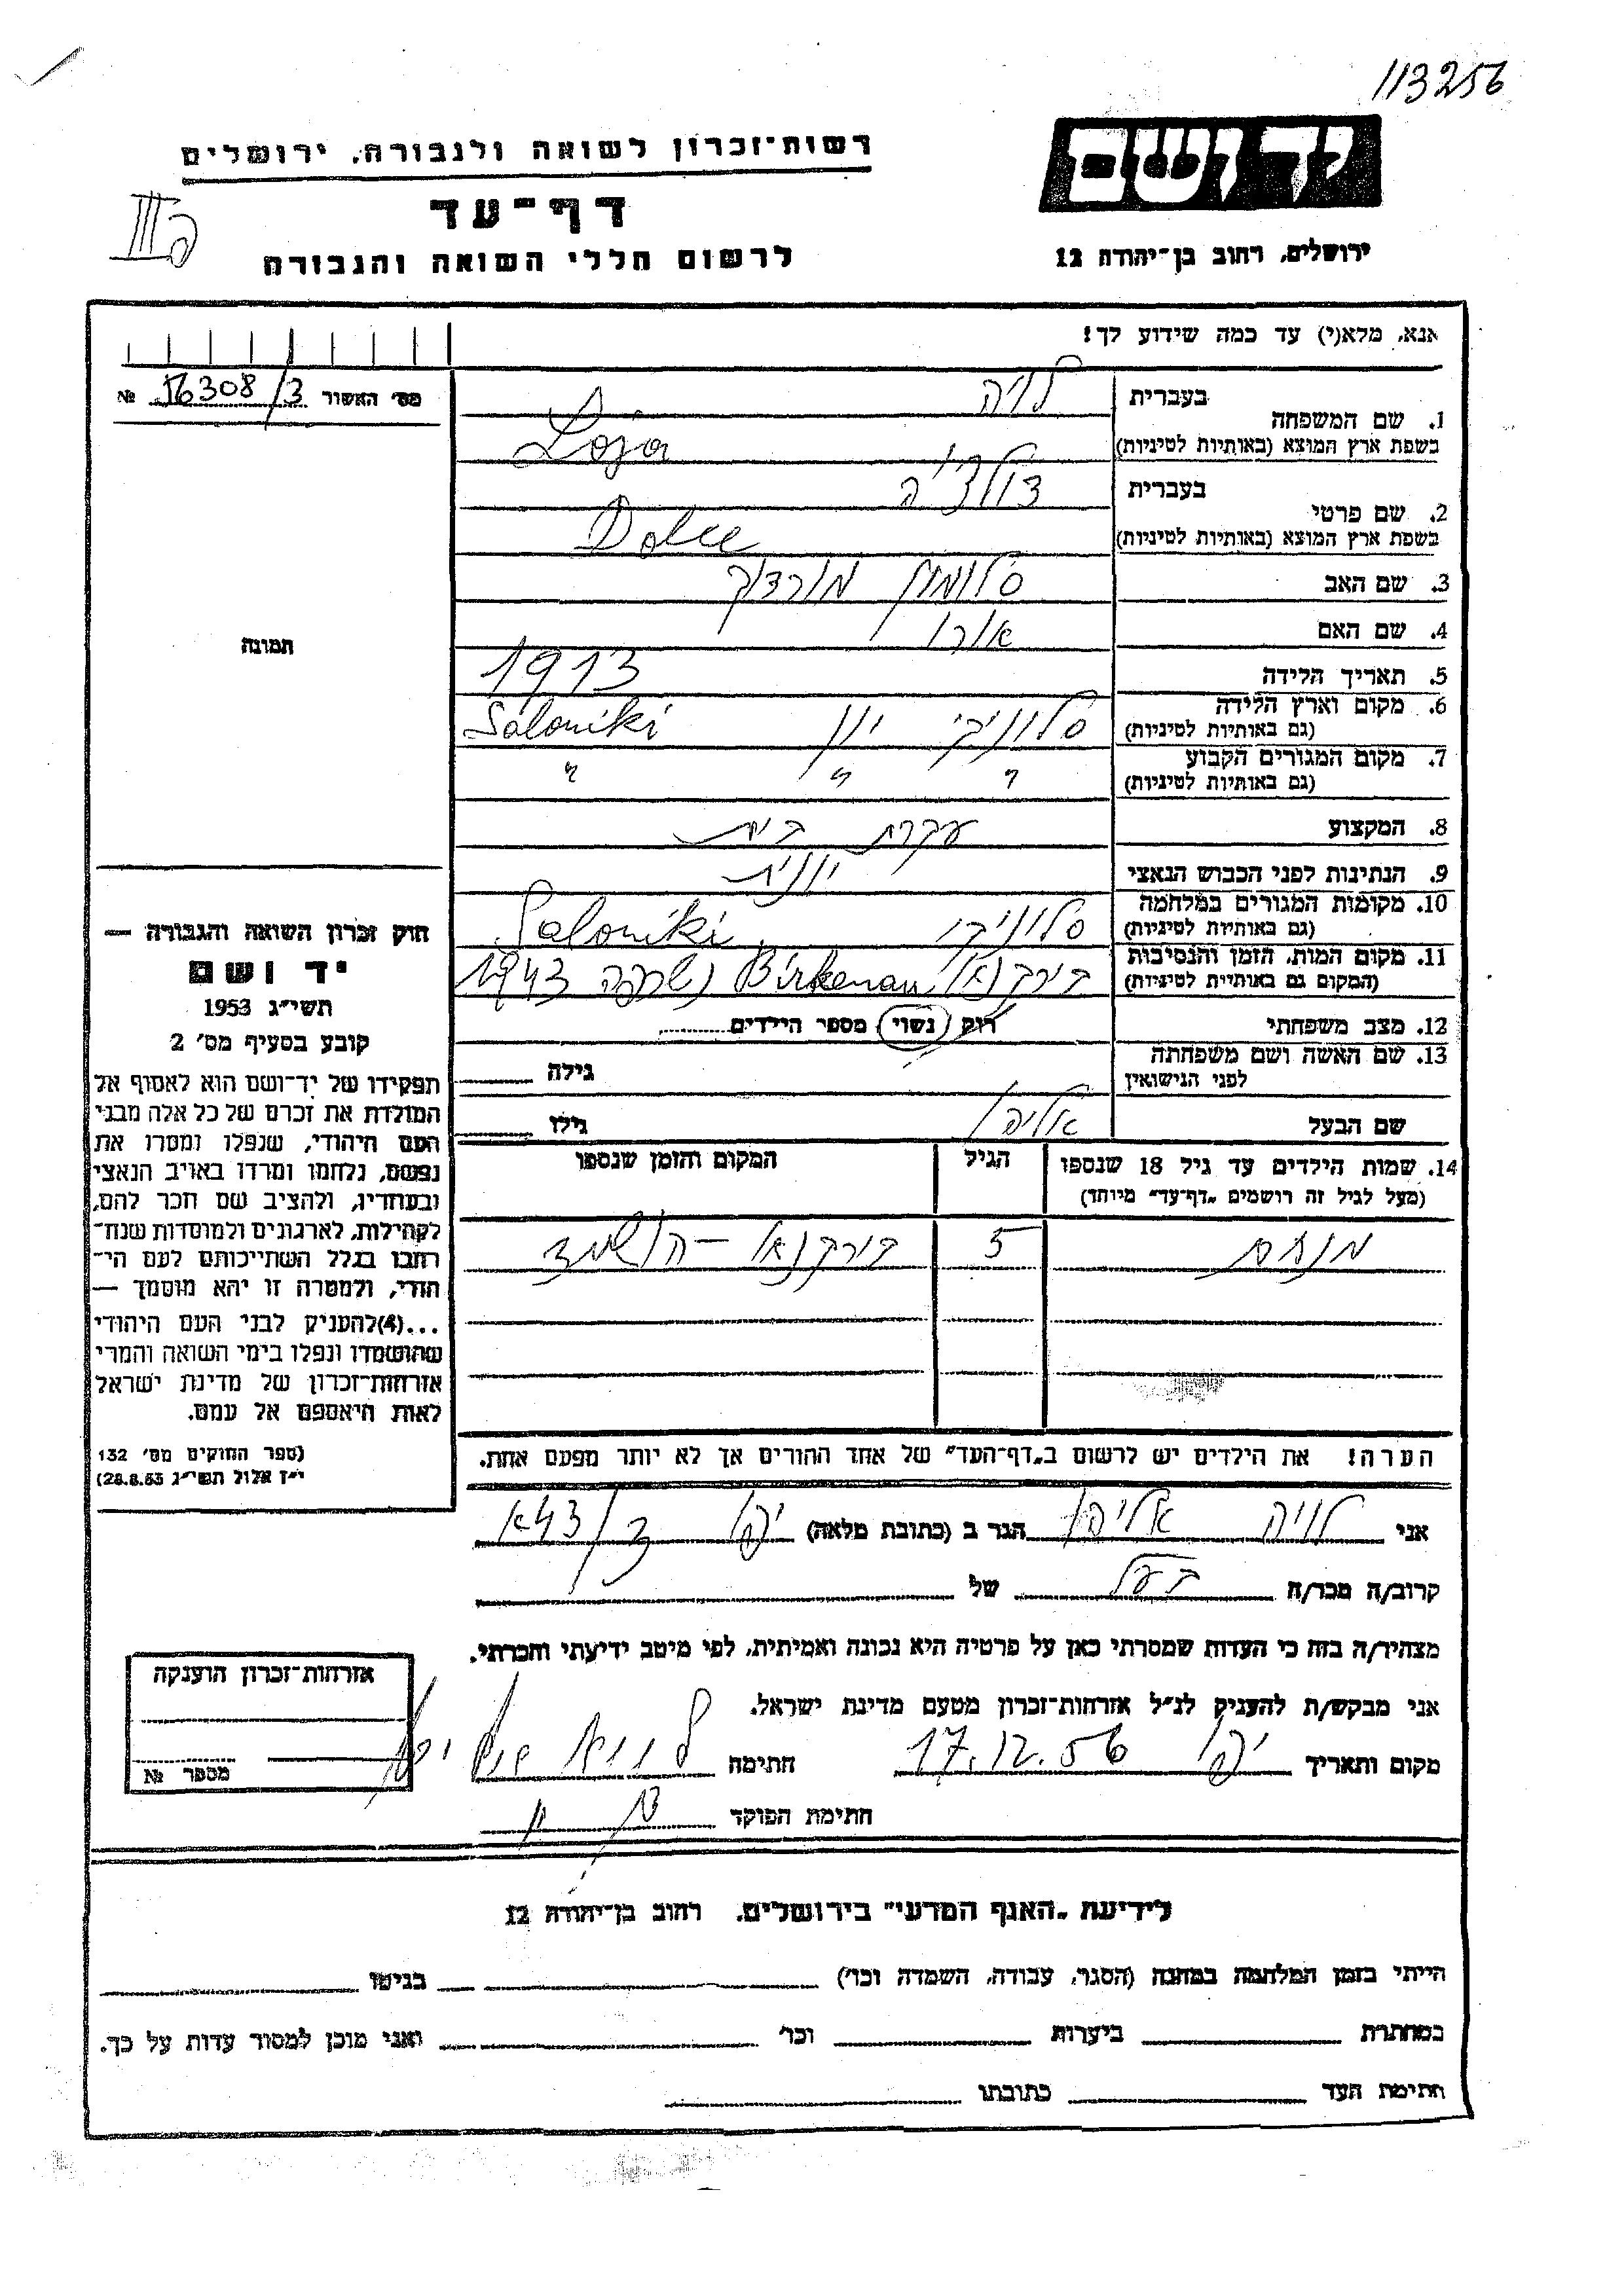 113256
יד ושם
רשות־זכרון לשואה ולגבורה, ירושלים
דף־עד
לרשום חללי השואה והגבורה
ירושלים, רחוב בן־יהודה 12
אנא, מלא(י) עד כמה שידוע לך!
מס' האשור 16308/3 №
1. שם המשפחה בעברית לויה
בשפת ארץ המוצא (באותיות לטיניות) Loja
2. שם פרטי בעברית דולצ'יה
בשפת ארץ המוצא (באותיות לטיניות) Dolce
3. שם האב סלומון מורדוך
4. שם האם אורו
תמונה
5. תאריך הלידה 1913
6. מקום וארץ הלידה סלוניקי יוון Saloniki
(גם באותיות לטיניות)
7. מקום המגורים הקבוע " " "
(גם באותיות לטיניות)
8. המקצוע עקרת בית
9. הנתינות לפני הכבוש הנאצי יוונית
10. מקומות המגורים במלחמה סלוניקי Saloniki
(גם באותיות לטיניות)
11. מקום המות, הזמן והנסיבות בירקנאו Birkenau נשרפה 1943
(המקום גם באותיית לטיניות)
12. מצב משפחתי רוק / נשוי / מספר הילדים
13. שם האשה ושם משפחתה
לפני הנישואין גילה
שם הבעל אליהו גילו
14. שמות הילדים עד גיל 18 שנספו הגיל המקום והזמן שנספו
(מעל לגיל זה רושמים "דף־עד" מיוחד)
מנחם 5 בירקנאו - הושמד
הערה! את הילדים יש לרשום ב"דף־העד" של אחד ההורים אך לא יותר מפעם אחת.
חוק זכרון השואה והגבורה —
יד ושם
תשי"ג 1953
קובע בסעיף מס' 2
תפקידו של יד־ושם הוא לאסוף אל
המולדת את זכרם של כל אלה מבני
העם היהודי, שנפלו ומסרו את
נפשם, נלחמו ומרדו באויב הנאצי
ובעוזריו, ולהציב שם וזכר להם,
לקהילות, לארגונים ולמוסדות שנח־
רבו בגלל השתייכותם לעם הי־
הודי, ולמטרה זו יהא מוסמך —
...(4)להעניק לבני העם היהודי
שהושמדו ונפלו בימי השואה והמרי
אזרחות־זכרון של מדינת ישראל
לאות היאספם אל עמם.
(ספר החוקים מס' 132
י"ז אלול תשי"ג 28.8.53)
אני לויה אליהו הגר ב (כתובת מלאה) יפו
קרוב/ה מכר/ה בעל של
מצהיר/ה בזה כי העדות שמסרתי כאן על פרטיה היא נכונה ואמיתית, לפי מיטב ידיעתי והכרתי.
אני מבקש/ת להעניק לנ"ל אזרחות־זכרון מטעם מדינת ישראל.
מקום ותאריך יפו 17.12.56 חתימה
חתימת הפוקד
אזרחות־זכרון הוענקה
מספר №
לידיעת "האגף המדעי" בירושלים, רחוב בן־יהודה 12
הייתי בזמן המלחמה במחנה (הסגר, עבודה, השמדה וכו') בגיטו
במחתרת ביערות וכו' ואני מוכן למסור עדות על כך.
חתימת העד כתובתו